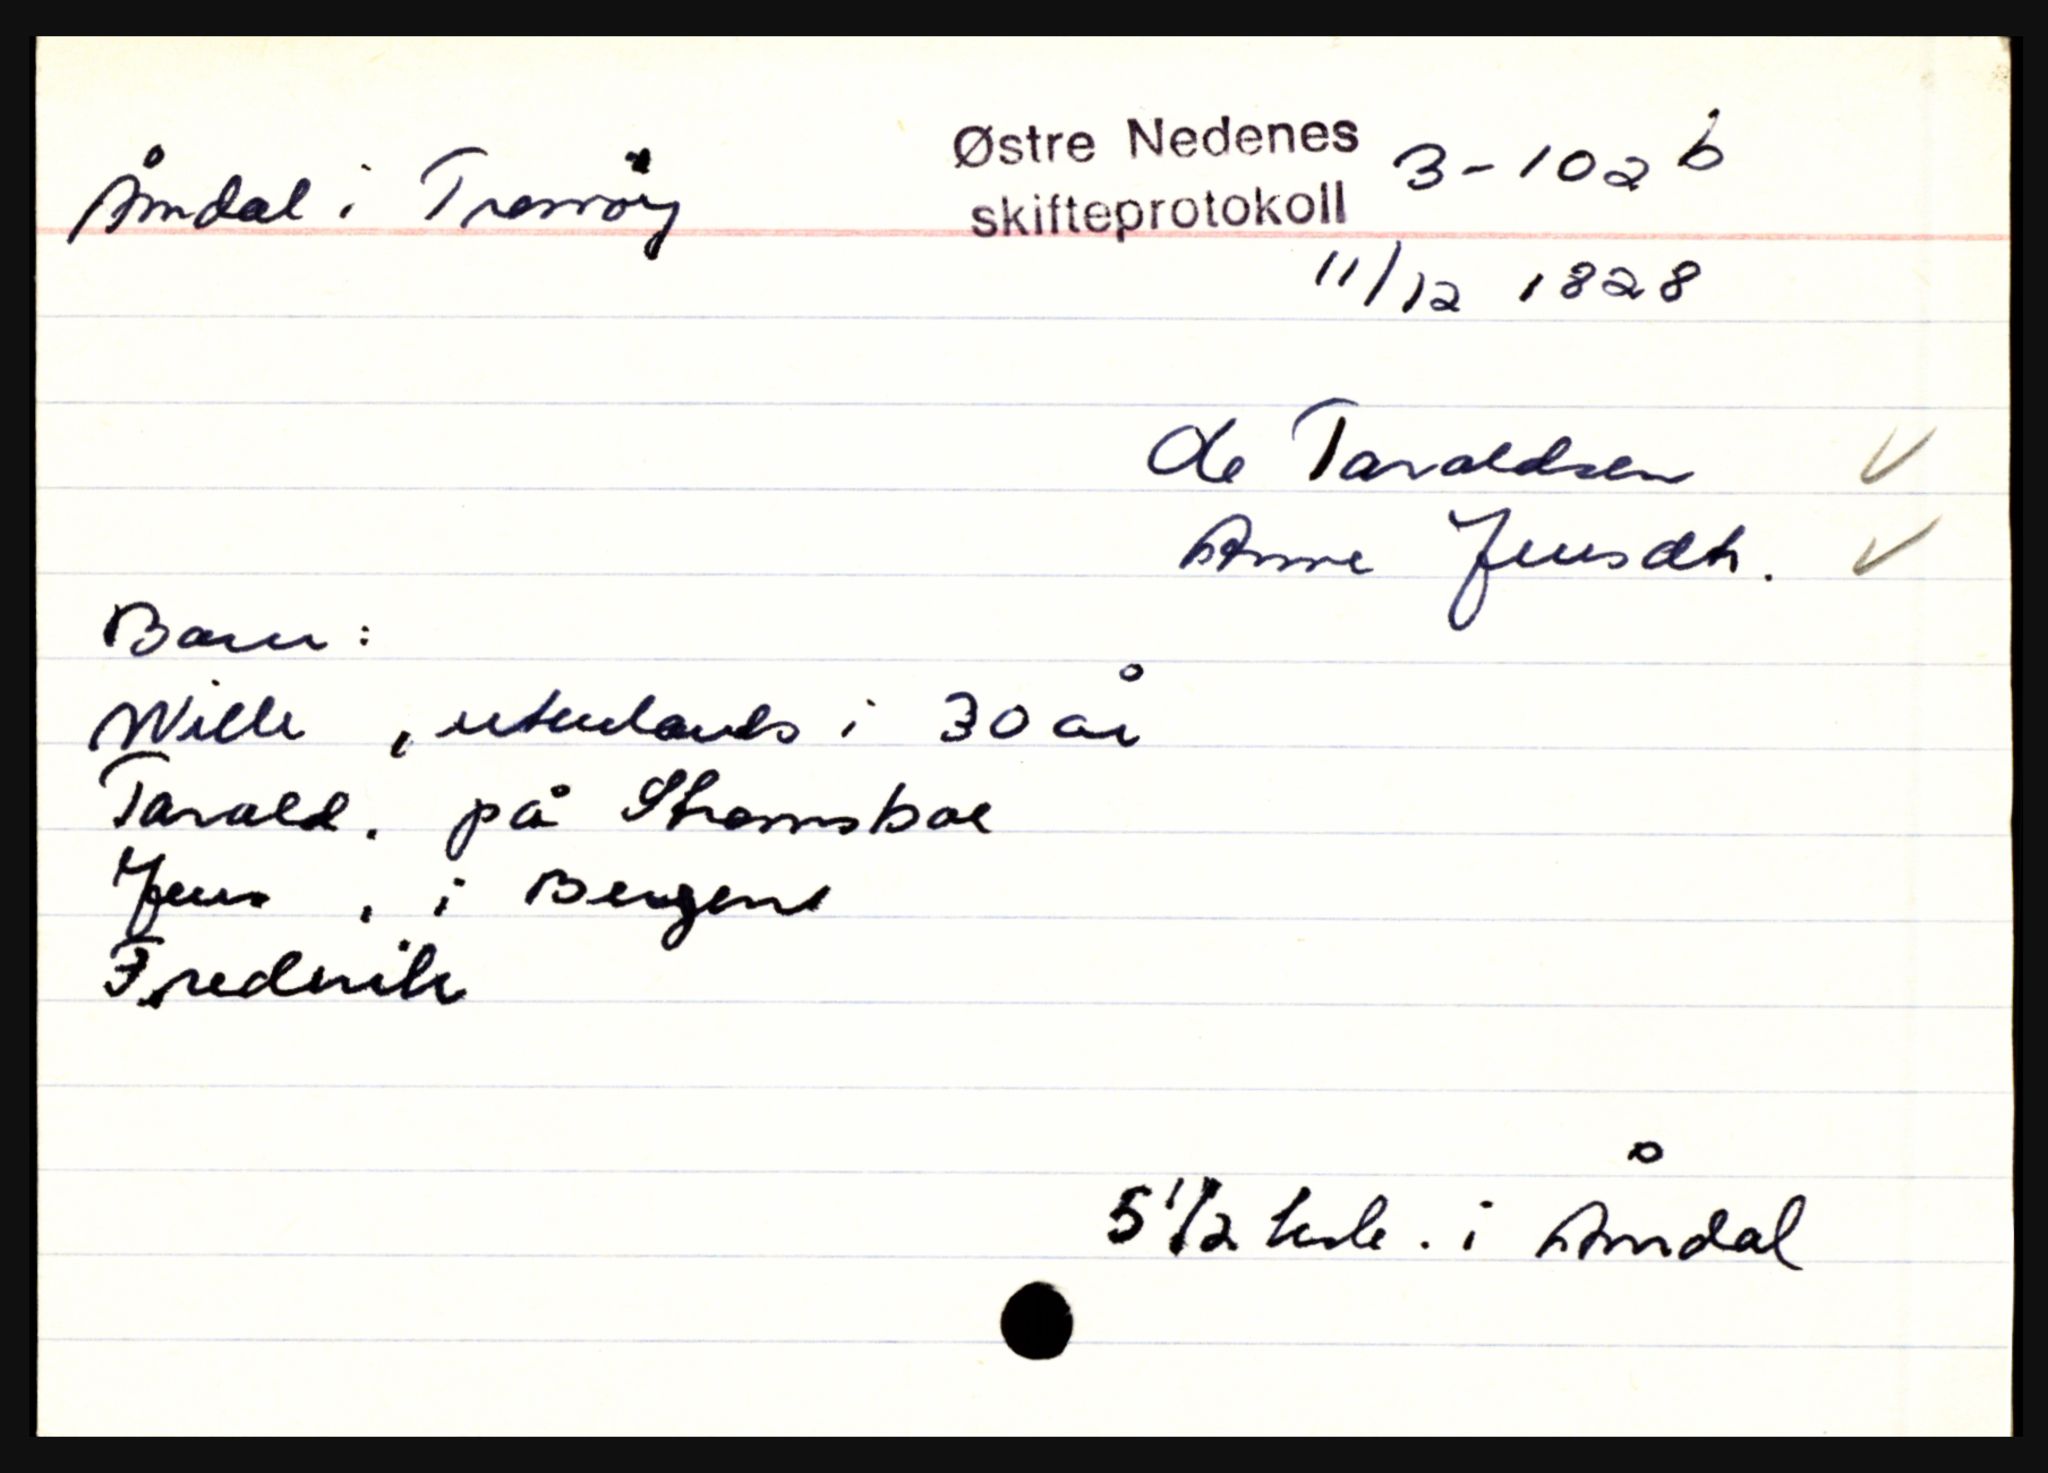 Åmdal i Tromöy
Østre Nedenes
skifteprotokoll
3-102 b
11/12 1828
Ole Taraldsen
Anne Jensdtr.
Barn:
Wille, utenlands i 30 år
Tarald. på Strømsboe
Jens, i Bergen
Fredrik
5 1/2 i Åmdal